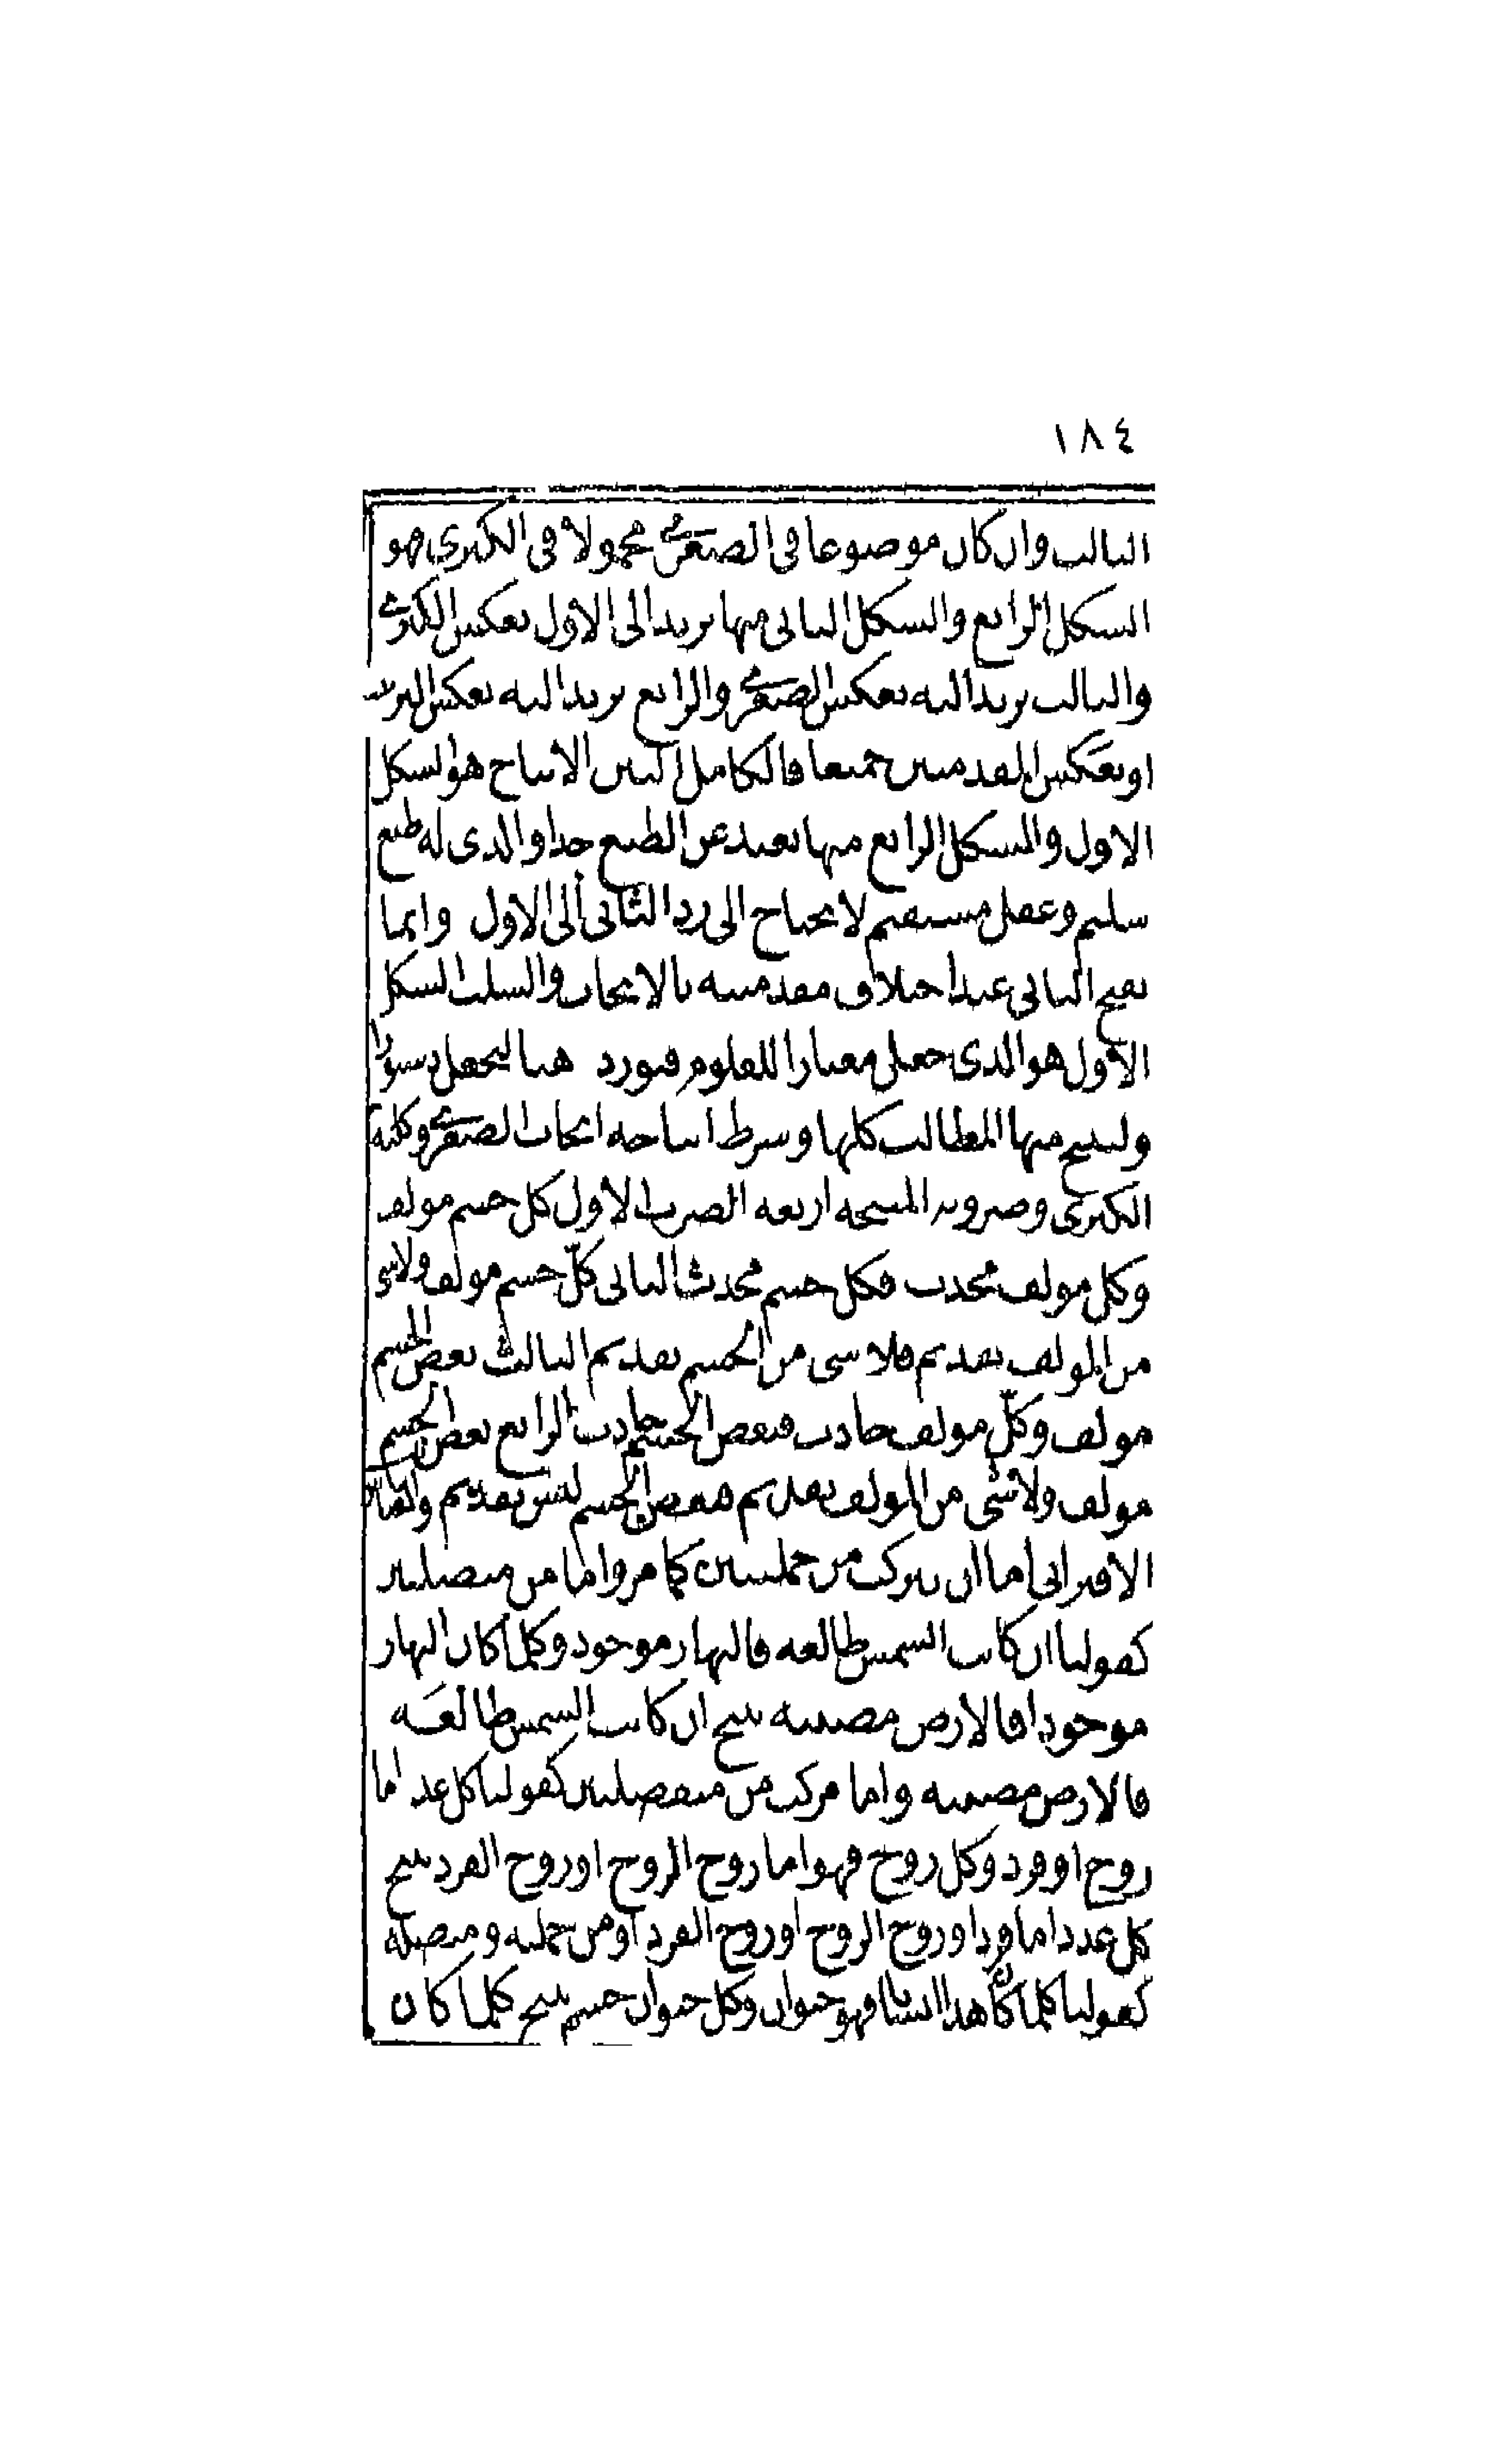 ١٨٤
الثالث وان كان موضوعا في الصغرى محمولا في الكبرى فهو
الشكل الرابع والشكل الثاني منها يرتد الى الاول بعكس الكبرى
والثالث يرتد اليه بعكس الصغرى والرابع يرتد اليه بعكس الترتيب
او بعكس المقدمتين جميعا فالكامل البين الانتاج هو الشكل
الاول والشكل الرابع منها بعيد عن الطبع جدا والذي له طبع
سليم وعقل مستقيم لا يحتاج الى رد الثاني الى الاول وانما
ينتج الثاني عند اختلاف مقدمتيه بالايجاب والسلب الشكل
الاول هو الذي جعل معيارا للعلوم فنورد هنا ليجعل دستورا
ولينتج منها المطالب كلها وشرط انتاجه ايجاب الصغرى وكلية
الكبرى وضروبه المنتجة اربعة الضرب الاول كل جسم مولف
وكل مولف محدث فكل جسم محدث الثاني كلّ جسم مولف ولا شي
من المولف بقديم فلا شي من الجسم بقديم الثالث بعض الجسم
مولف وكلّ مولف حادث فبعض الجسم حادث الرابع بعض الجسم
مولف ولا شي من المولف بقديم فبعض الجسم ليس بقديم والقياس
الاقتراني اما ان يتركب من حمليتين كما مر واما من متصلتين
كقولنا ان كانت الشمس طالعة فالنهار موجود وكلما كان النهار
موجودا فالارض مضيئة ينتج ان كانت الشمس طالعَة
فالارض مضيئة واما مركب من منفصلتين كقولنا كل عدد اما
زوج او فرد وكل زوج فهو اما زوج الزوج او زوج الفرد ينتج
كل عدد اما فرد او زوج الزوج او زوج الفرد او من حملية ومتصلة
كقولنا كلما كان هذا انسانا فهو حيوان وكل حيوان جسم ينتج كلما كان